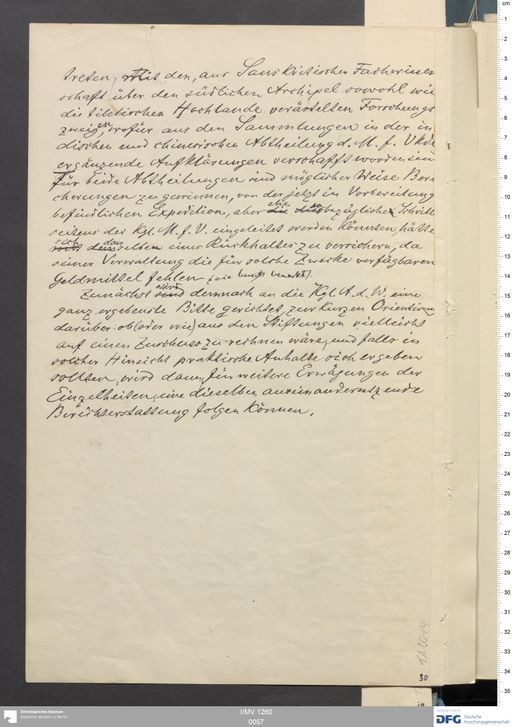 treten, mit den, aus Sanskritischer Fachwissen
schaft über den südlichen Archipel sowohl wie
die tibetischen Hochlande verästelten Forschungs
zweigen, wofür aus den Sammlungen in der in
dischen und chinesischen Abtheilung d. M. f. Vkde
ergänzende Aufklärungen verschafft worden sind
Für beide Abtheilungen sind möglicher Weise Berei
cherungen zu gewinnen, von der jetzt in Vorbereitung
befindlichen Expedition, aber ehe die bezüglichen Schritte
seitens des Kgl. M. f. V. eingeleitet werden könnten, hätte
sich dasselbe eines Rückhaltes zu versichern, da
seiner Verwaltung die für solche Zwecke verfügbaren
Geldmittel fehlen (wie bereits bemerkt).
Zunächst wird demnach an die Kgl. A. d. W. eine
ganz ergebenste Bitte gerichtet, zur kurzen Orientirung
darüber ob (oder wie) aus den Stiftungen vielleicht
auf einen Zuschuss zu rechnen wäre, und falls in
solcher Hinsicht praktische Anhalte sich ergeben
sollten, wird dann, für weitere Erwägungen der
Einzelheiten, eine dieselben auseinandersetzende
Berichterstattung folgen können.
TA 0049
30
Ethnologisches Museum
Staatliche Museen zu Berlin
I/MV 1260
0057
DFG
Deutsche
Forschungsgemeinschaft